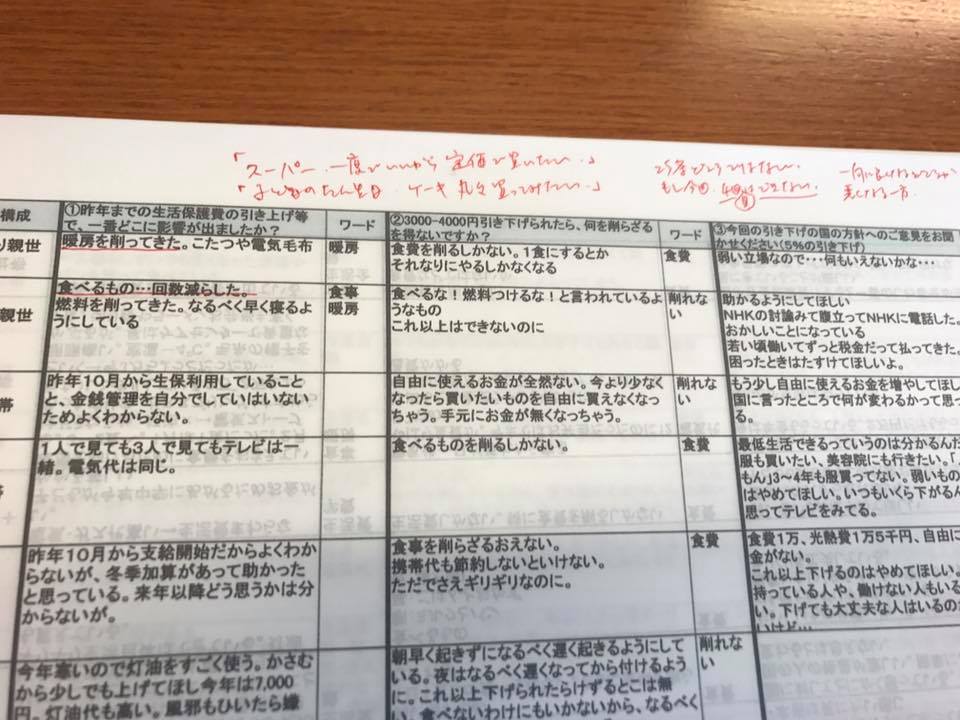 「スーパー、一度でいいから定価で買いたい。」
「子どものたん生日 ケーキ丸々買ってみたい」
もし今回、
構成
①昨年までの生活保護費の引き上げ等
で、一番どこに影響が出ましたか？
ワード
②3000-4000円引き下げられたら、何を削らざる
を得ないですか？
ワード
③今回の引き下げの国の方針へのご意見をお聞
かせください（5%の引き下げ）
親世
暖房を削ってきた。こたつや電気毛布
暖房
食費を削るしかない。1食にするとか
それなりにやるしかなくなる
食費
弱い立場なので・・・何もいえないかな・・・
親世
食べるもの…回数減らした。
燃料を削ってきた。なるべく早く寝るよ
うにしている
食事
暖房
食べるな！燃料つけるな！と言われているよ
うなもの
これ以上はできないのに
削れな
い
助かるようにしてほしい
NHKの討論みて腹立ってNHKに電話した。
おかしいことになっている
若い頃働いてずっと税金だって払ってきた。
困ったときはたすけてほしいよ。
帯
昨年10月から生保利用していること
と、金銭管理を自分でしていはいない
ためよくわからない。
自由に使えるお金が全然ない。今より少なく
なったら買いたいものを自由に買えなくなっ
ちゃう。手元にお金が無くなっちゃう。
削れな
い
もう少し自由に使えるお金を増やしてほし
国に言ったところで何が変わるかって思っ
る。
1人で見ても3人で見てもテレビは一
緒。電気代は同じ。
食べるものを削るしかない。
食費
最低生活できるっていうのは分かるんだ
服も買いたい、美容院にも行きたい。「
もん」3～4年も服買ってない。弱いもの
はやめてほしい。いつもいくら下がるん
思ってテレビをみてる。
昨年10月から支給開始だからよくわか
らないが、冬季加算があって助かった
と思っている。来年以降どう思うかは分
からないが。
食事を削らざるおえない。
携帯代も節約しないといけない。
ただでさえギリギリなのに。
食費
食費1万、光熱費1万5千円、自由に
金がない。
これ以上下げるのはやめてほしい。
持っている人や、働けない人もいる
い。下げても大丈夫な人はいるの
いけど…
今年寒いので灯油をすごく使う。かさむ
から少しでも上げてほし今年は7,000
円。灯油代も高い。風邪もひいたら嫌
朝早く起きずになるべく遅く起きるようにして
いる。夜はなるべく遅くなってから付けるよう
に。これ以上下げられたらけずるとこは無
い。食べないわけにもいかないから、なるべく
削れな
い